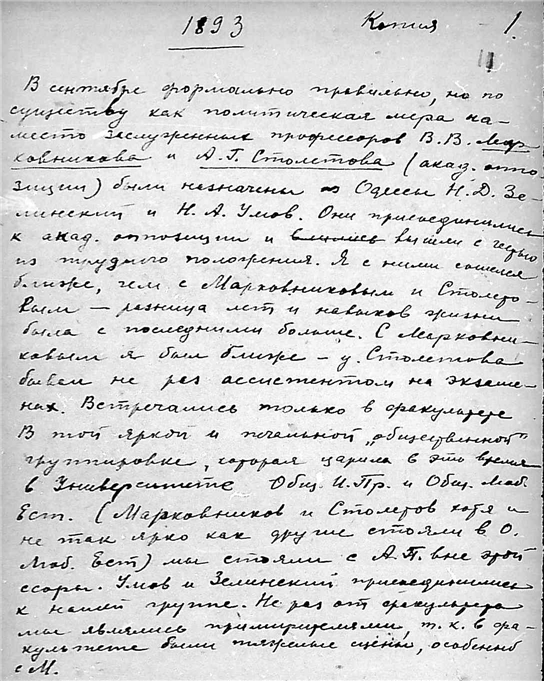 1893 Копия 1
11
В сентябре формально правильно, но по
существу как политическая мера на-
место заслуженных профессоров В.В. Мар
ковникова и А.Г. Столетова (акад. оппо
зиции) были назначены из Одессы Н.Д. Зе-
линский и Н.А. Умов. Они присоединились
к акад. оппозиции и вышли с честью
из трудного положения. Я с ними сошелся
ближе, чем с Марковниковым и Столето-
вым — разница лет и навыков жизни
была с последними больше. С Марковни-
ковым я был ближе — у Столетова
бывал не раз ассистентом на экзаме-
нах. Встречались только в факультете
В той яркой и печальной „общественной"
группировке, которая царила в это время
в Университете Общ. И. Пр. и Общ. Люб.
Ест. (Марковников и Столетов хотя и
не так ярко как другие стояли в О.
Люб. Ест) мы стояли с А.П. вне этой
ссоры. Умов и Зелинский присоединились
к нашей группе. Не раз от факультета
мы являлись примирителями, т.к. в фа-
культете были тяжелые сцены, особенно
с М.